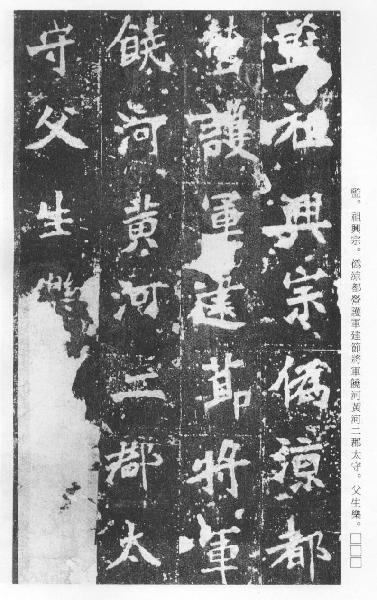 監。祖興宗。僞涼都督護軍建節將軍饒河黃河二郡太守。父生樂。□□□
監祖興宗僞涼都
督護軍建節將軍
饒河黃河二郡太
守父生